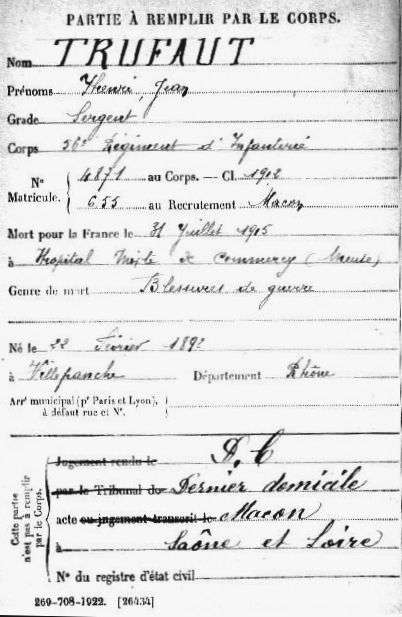 PARTIE À REMPLIR PAR LE CORPS.
Nom TRUFAUT
Prénoms Henri, Jean
Grade Sergent
Corps 56e Régiment d'Infanterie
N° Matricule. { 4871 au Corps. — Cl. 1912
655 au Recrutement Macon
Mort pour la France le 31 Juillet 1915
à Hopital Mixte de Commercy (Meuse)
Genre de mort Blessures de guerre
Né le 22 Février 1892
à Villefranche Département Rhône
Arrt municipal (pr Paris et Lyon), à défaut rue et N°.
Cette partie n'est pas à remplir par le Corps.
Jugement rendu le D. C
par le Tribunal de Dernier domicile
acte ou jugement transcrit le Macon
à Saône et Loire
N° du registre d'état civil
269-708-1922. [26434]